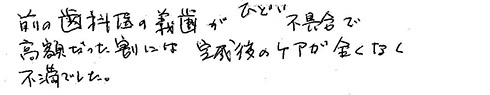 前の歯科医の義歯が ひどい 不具合で
高額だった割には 完成後のケアが全くなく
不満でした。